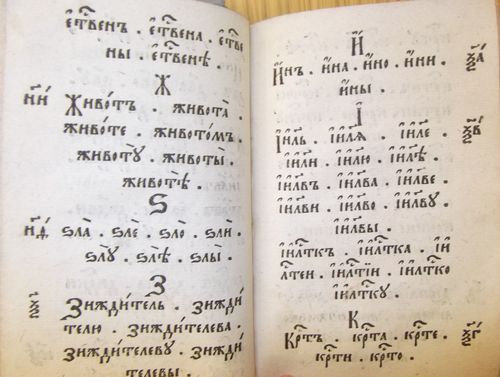 є҆ст҃венъ . є҆ст҃вена . є҆ст҃ве
ны є҆ст҃венѣ .
Ж
Живо́тъ . живота̀ .
живо́те . живото́мъ .
животꙋ̀ . животы̀ .
животѣ̀ .
Ѕ
н҃д ѕла̀ . ѕлѐ . ѕло . ѕли .
ѕлꙋ̀ . ѕлѣ̀ . ѕлы̀ .
З
Зижди́тель . зижди́
телю . зижди́телева .
зижди́телевꙋ . зижди́
телевы .
И҆
И҆́нъ . и҆́на . и҆́но . и҆́ни .
и҆́ны .
І҆
І҆и҃ль . і҆и҃лѧ . і҆и҃ле .
і҆и҃ли . і҆и҃лю . і҆и҃лѣ .
і҆и҃лвъ . і҆и҃лва . і҆и҃лве .
і҆и҃лви . і҆и҃лво . і҆и҃лвꙋ .
і҆и҃лвы .
і҆и҃лткъ . і҆и҃лтка . і҆и҃
лтен . і҆и҃лтїи . і҆и҃лтко
і҆и҃лткꙋ .
К
Кр҃тъ . кр҃та . кр҃те .
кр҃ти . кр҃то .